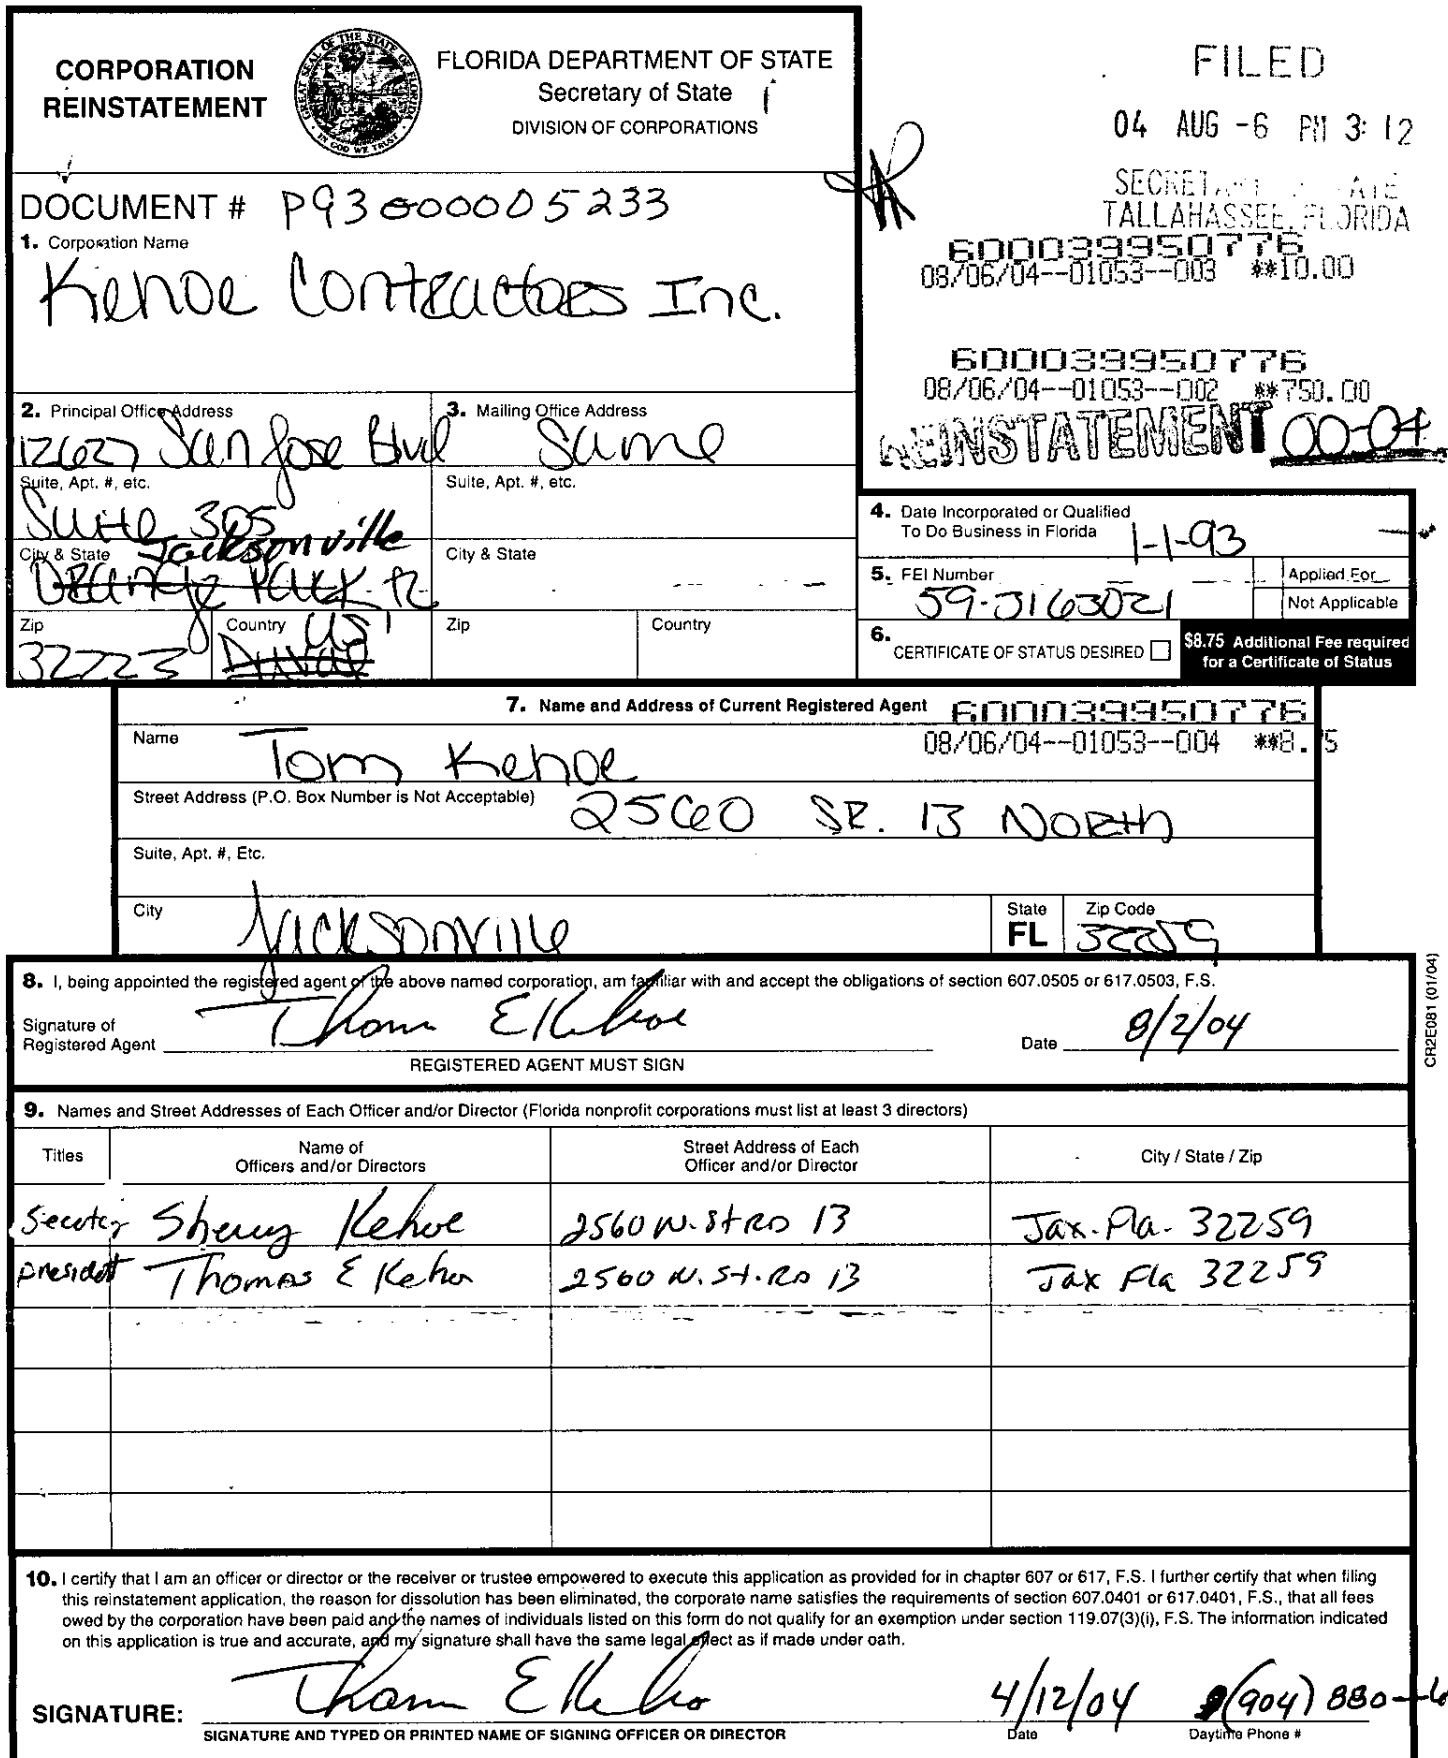 CORPORATION
REINSTATEMENT
GREAT SEAL OF THE STATE OF FLORIDA
IN GOD WE TRUST
FLORIDA DEPARTMENT OF STATE
Secretary of State
DIVISION OF CORPORATIONS
FILED
04 AUG -6 PM 3:12
TALLAHASSEE, FLORIDA
DOCUMENT # P93000005233
1. Corporation Name
Kehoe Contractors Inc.
600039950776
08/06/04--01053--003 **10.00
600039950776
08/06/04--01053--002 **750.00
REINSTATEMENT 00-04
2. Principal Office Address
12627 San Jose Blvd
3. Mailing Office Address
Same
Suite, Apt. #, etc.
Suite 305
Suite, Apt. #, etc.
City & State
Jacksonville
Orange Park FL
City & State
Zip
32223
Country
US
Duval
Zip
Country
4. Date Incorporated or Qualified
To Do Business in Florida
1-1-93
5. FEI Number
59-3163021
Applied For
Not Applicable
6. CERTIFICATE OF STATUS DESIRED
$8.75 Additional Fee required
for a Certificate of Status
7. Name and Address of Current Registered Agent
600039950776
08/06/04--01053--004 **8.75
Name
Tom Kehoe
Street Address (P.O. Box Number is Not Acceptable)
2560 SR. 13 North
Suite, Apt. #, Etc.
City
Jacksonville
State
FL
Zip Code
32259
8. I, being appointed the registered agent of the above named corporation, am familiar with and accept the obligations of section 607.0505 or 617.0503, F.S.
Signature of
Registered Agent
Thom E Kehoe
Date 8/2/04
REGISTERED AGENT MUST SIGN
CR2E081 (01/04)
9. Names and Street Addresses of Each Officer and/or Director (Florida nonprofit corporations must list at least 3 directors)
Titles
Name of
Officers and/or Directors
Street Address of Each
Officer and/or Director
City / State / Zip
Sherry Kehoe 2560 N. St Rd 13 Jax. Fla. 32259
president Thomas E Kehoe 2560 N. St. Rd 13 Jax Fla 32259
10. I certify that I am an officer or director or the receiver or trustee empowered to execute this application as provided for in chapter 607 or 617, F.S. I further certify that when filing
this reinstatement application, the reason for dissolution has been eliminated, the corporate name satisfies the requirements of section 607.0401 or 617.0401, F.S., that all fees
owed by the corporation have been paid and the names of individuals listed on this form do not qualify for an exemption under section 119.07(3)(i), F.S. The information indicated
on this application is true and accurate, and my signature shall have the same legal effect as if made under oath.
SIGNATURE: Thom E Kehoe 4/12/04 (904) 880-6
SIGNATURE AND TYPED OR PRINTED NAME OF SIGNING OFFICER OR DIRECTOR
Date
Daytime Phone #